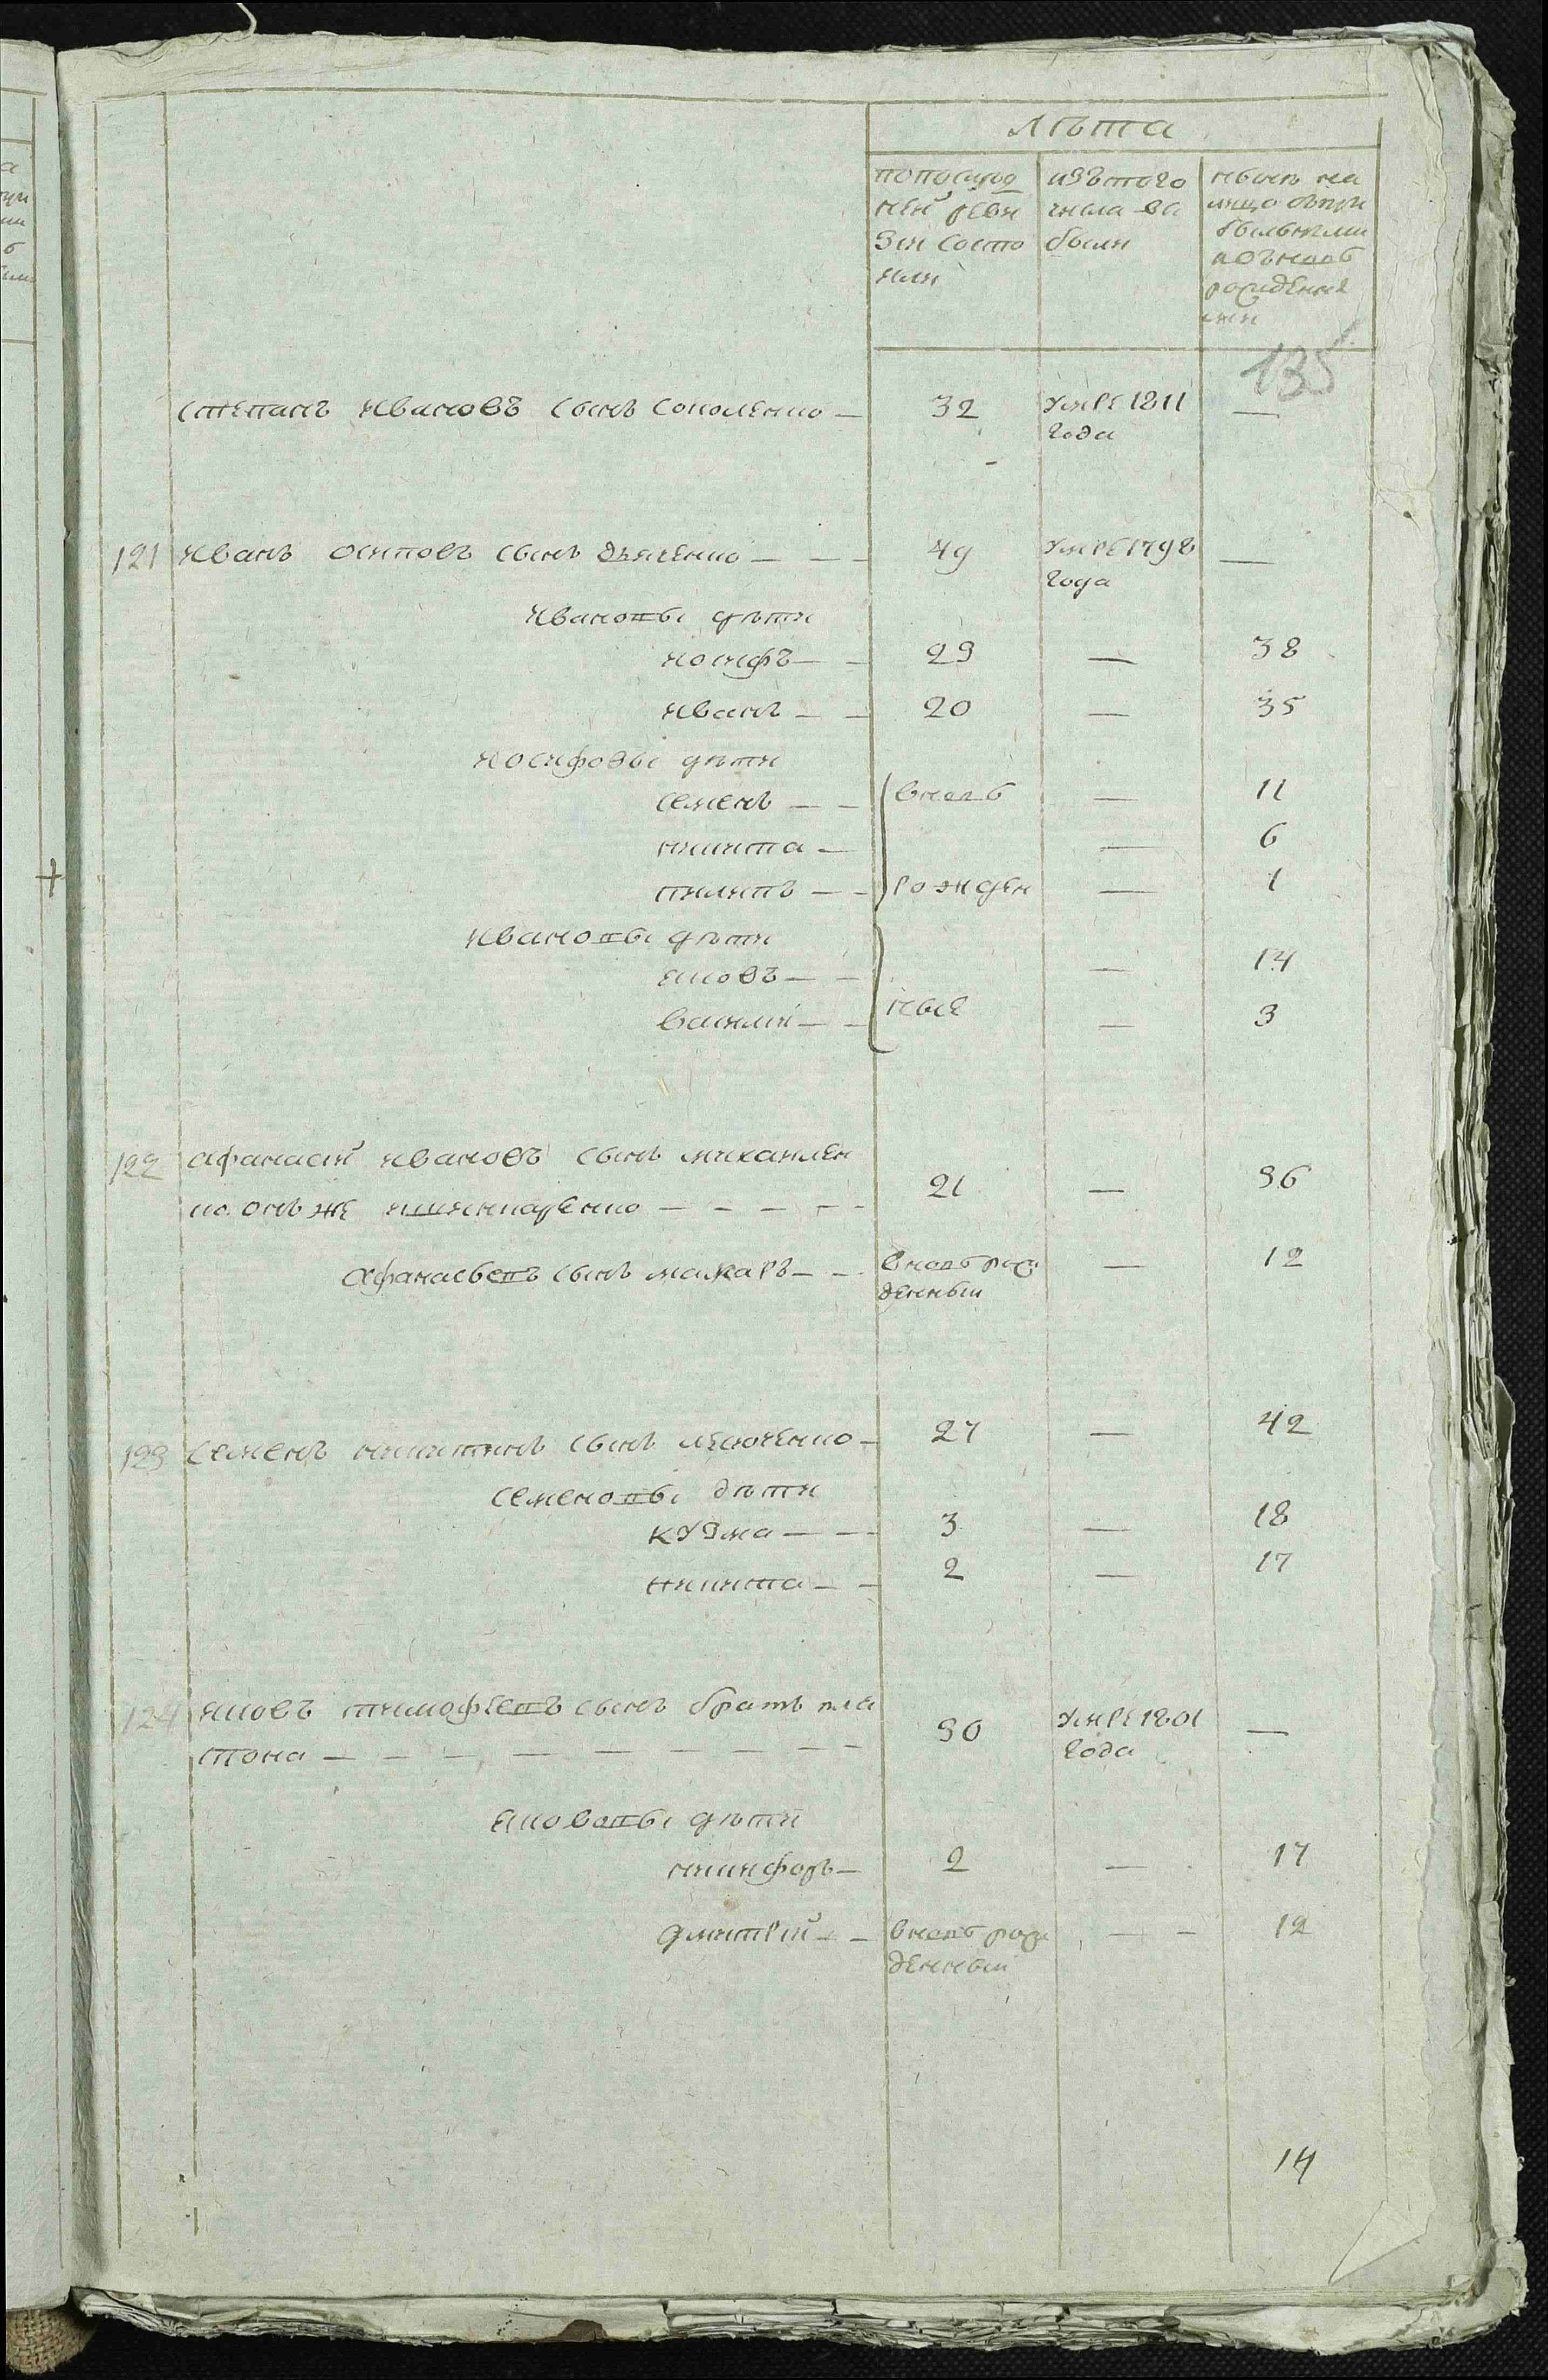 Лѣта
попослѣд
ней реви
зіи состо
яли
изътого
числа вы
были
нынѣ на
лицо съпри
былыми
и въновь
рожденны
ми
135
Степанъ Ивановъ сынъ Соколенко — 32 умре 1811 —
года
121 Иванъ Осиповъ сынъ Дьяченко — — — 49 умре 1798 —
года
Ивановы дѣти
Иосифъ — — 23 — 38
Иванъ — — 20 — 35
Иосифовы дѣти
Семенъ — — вновь — 11
Никита — — 6
Пилипъ — — рожден — 1
Ивановы дѣти
Яковъ — — — 14
Василий — — ные — 3
122 Афанасий Ивановъ сынъ Михайлен
ко онъ же — — — — — 21 — 36
Афанасьевъ сынъ Макаръ — — вновь рож — 12
денный
123 Семенъ Никитинъ сынъ — 27 — 42
Семеновы дѣти
Кузма — — 3 — 18
Никита — — 2 — 17
124 Яковъ Тимофеевъ сынъ братъ Пла
тона — — — — — — — — — 30 умре 1801 —
года
Яковови дѣти
Никифоръ — 2 — 17
Дмитрий — — вновь рож — — 12
денный
14